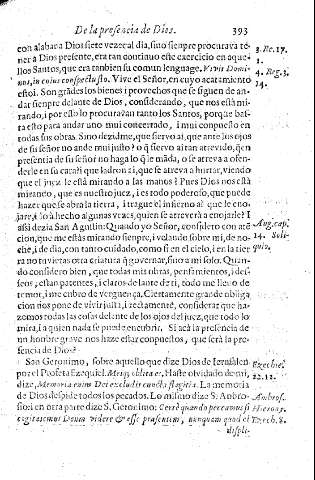 De la presencia de Dios. 393
con alabava a Dios siete vezes al dia, sino siempre procurava te-
ner a Dios presente, era tan continuo este exercicio en aque-
llos Santos, que era tanbien su comun lenguage. Vivit Domi-
nus, in cuius conspectu sto. Vive el Señor, en cuyo acatamiento
estoi. Son grãdes los bienes i provechos que se siguen de an-
dar siempre delante de Dios, considerando, que nos està mi-
rando, i por esto lo procuravan tanto los Santos, porque bas-
ta esto para andar uno mui concertado, i mui conpuesto en
todas sus obras. Sino dezidme, que siervo ai, que ante los ojos
de su señor no ande mui justo? o q̃ siervo ai tan atrevido, q̃ en
presencia de su señor no haga lo q̃ le mãda, o se atreva a ofen-
derle en su cara? i que ladron ai, que se atreva a hurtar, viendo
que el juez le està mirando a las manos? Pues Dios nos està
mirando, que es nuestro juez, i es todo poderoso, que puede
hazer que se abra la tierra, i trague el infierno al que le eno-
jare, i lo à hecho algunas vezes, quien se atreverà a enojarle? I
assi dezia San Agustin: Quando yo Señor, considero con atẽ-
cion, que me està mirando siempre, i velando sobre mi, de no-
che, i de dia, con tanto cuidado, como si en el cielo, i en la tier-
ra no tuvieras otra criatura q̃ governar, sino a mi solo. Quan-
do considero bien, que todas mis obras, pensamientos, i de-
seos, estan patentes, i claros delante de ti, todo me lleno de
temor, i me cubro de verguença. Ciertamente grande obliga
cion nos pone de vivir justa, i rectamente, considerar que ha-
zemos todas las cosas delante de los ojos del juez, que todo lo
mira, i a quien nada se puede encubrir. Si acà la presencia de
un honbre grave nos haze estar conpuestos, que serà la pre-
sencia de Dios?
San Geronimo, sobre aquello que dize Dios de Ierusalen
por el Profeta Ezequiel. Meiq; oblita es, Haste olvidado de mi,
dize, Memoria enim Dei excludit cuncta flagitia. La memoria
de Dios despide todos los pecados. Lo mismo dize S. Anbro-
sio: i en otra parte dize S. Geronimo: Certè quando peccamus si
cogitaremus Deum videre & esse præsentem, nunquam quod ei
displi-
3. Re. 17.
1.
4. Reg. 3.
14.
Aug. cap.
14. Soli-
quio.
Ezechie.
22. 12.
Ambros.
Hieron.
Ezech. 8.